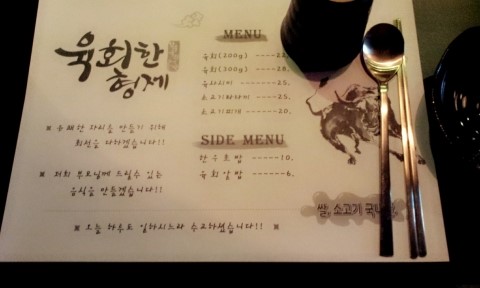 육회한
형제
MENU
육회(200g) -----
육회(300g) -----28,
육사시미 -----25,
소고기타다끼 -----25,
소고기찌개 -----20,
SIDE MENU
한우초밥 ------10,
육회알밥 ------6,
※ 유쾌한 자리를 만들기 위해
최선을 다하겠습니다!!
※ 저희 부모님께 드릴수 있는
음식을 만들겠습니다!!
※ 오늘 하루도 일하시느라 수고하셨습니다!! ※
쌀, 소고기